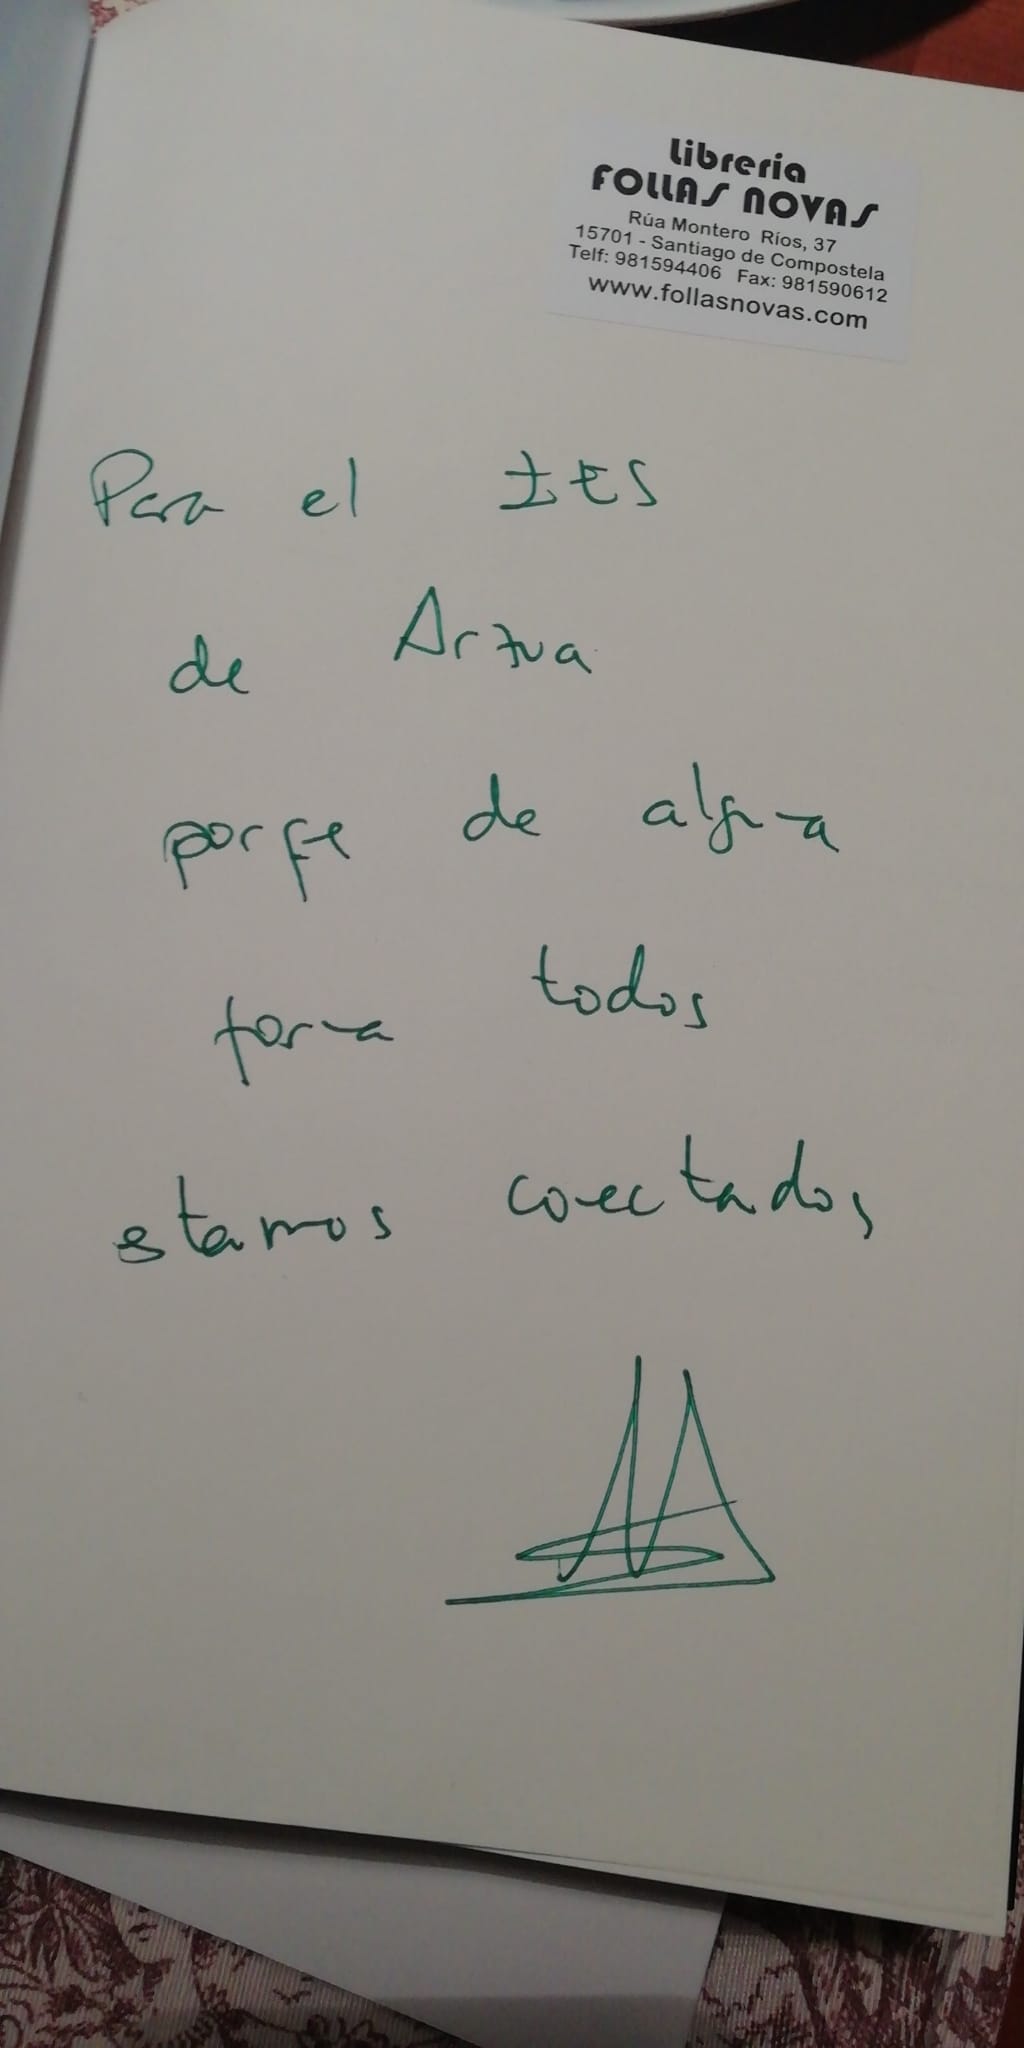 Librería
FOLLAS NOVAS
Rúa Montero Ríos, 37
15701 - Santiago de Compostela
Telf: 981594406 Fax: 981590612
www.follasnovas.com
Para el IES
de Arzua
porqe de alguna
forma todos
estamos conectados